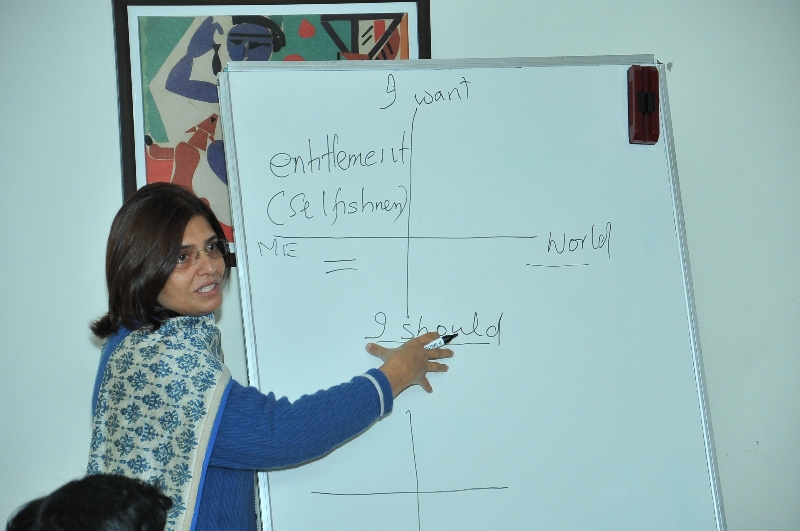 I want
entitlement
(Selfishnen)
ME
World
I should